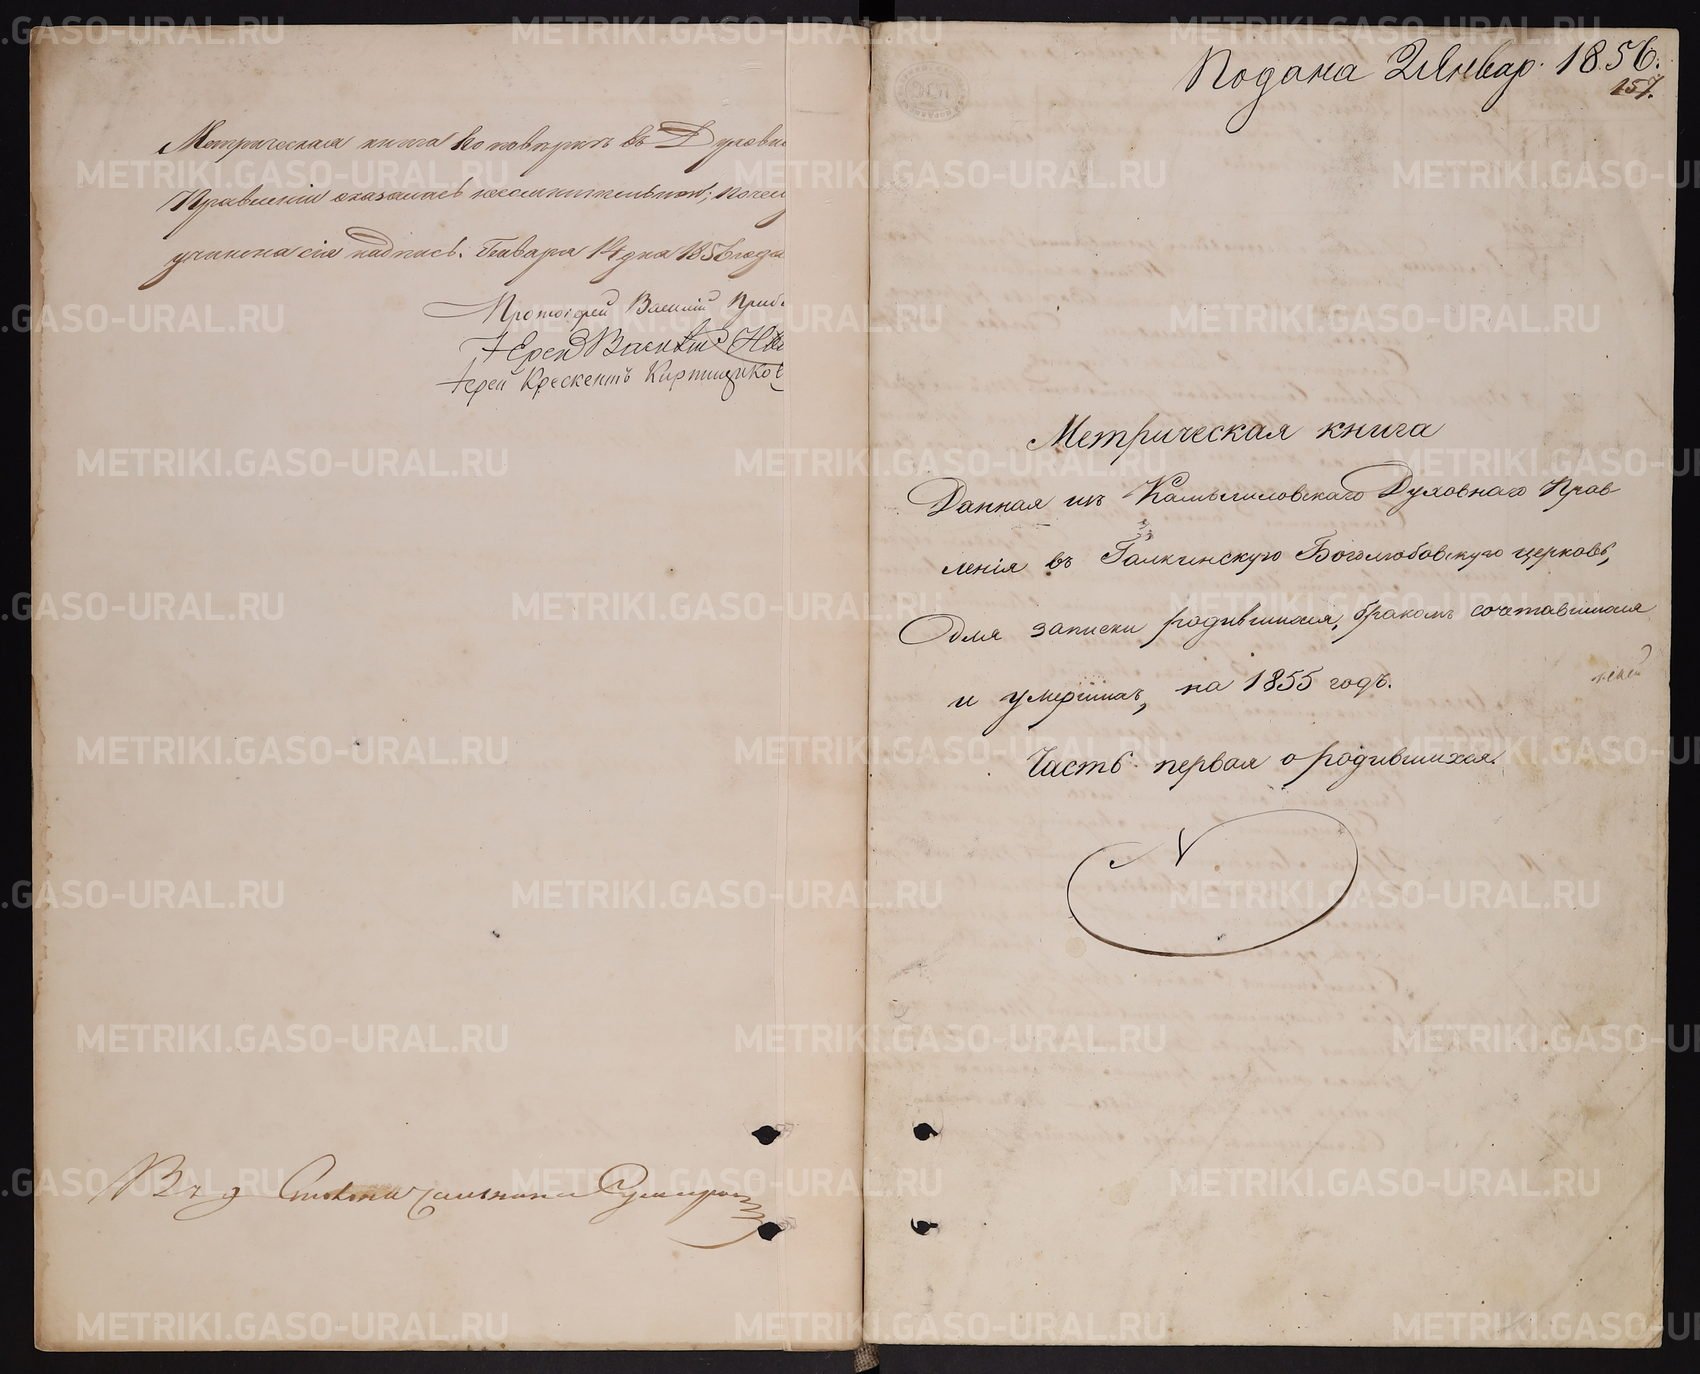 Метрическая книга по поверкѣ въ Духовно
Правленіи оказалась несомнительною; почему
учинена сія надпись. Генваря 14 дня 1856 года
Протоіерей Василій
Іерей Василій
Іерей Крескентъ Кирпищиков
Подана 2 Январ. 1856.
157.
Метрическая книга
Данная изъ Камышловскаго Духовнаго Прав
ленія въ Галкинскую Боголюбовскую церковь,
Для записки родившихся, бракомъ сочетавшихся
и умершихъ, на 1855 годъ.
Часть первая о родившихся.
METRIKI.GASO-URAL.RU